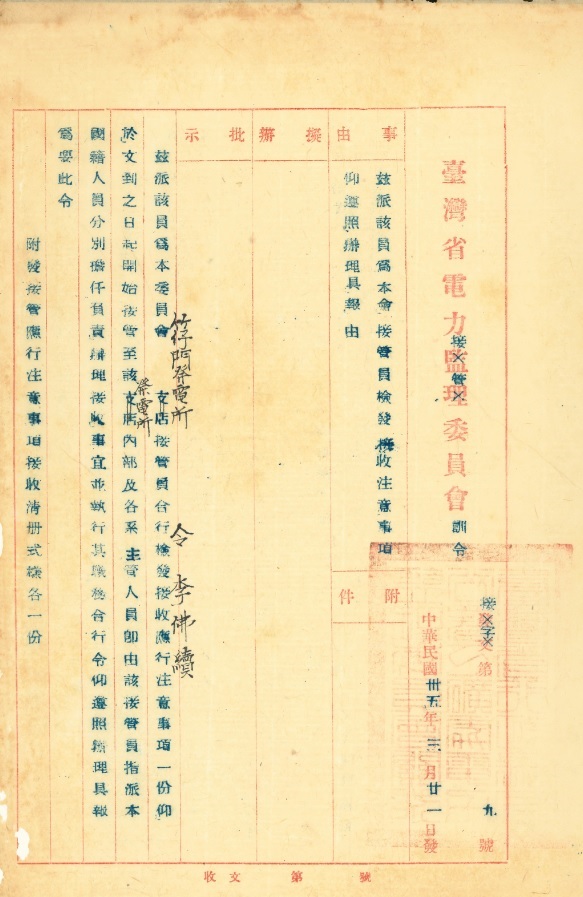 臺灣省電力監理委員會訓令
接管
接字第九號
中華民國卅五年三月廿一日發
事由
擬辦
批示
附件
茲派該員為本會接管員檢發接收注意事項
仰遵照辦理具報由
令 李佛續
竹仔門發電所
茲派該員為本委員會 支店接管員合行檢發接收應行注意事項一份仰
發電所
於文到之日起開始接管至該支店內部及各系主管人員卽由該接管員指派本
國籍人員分別擔任負責辦理接收事宜並執行其職務合行令仰遵照辦理具報
為要此令
附發接管應行注意事項接收清册式樣各一份
收文 第 號